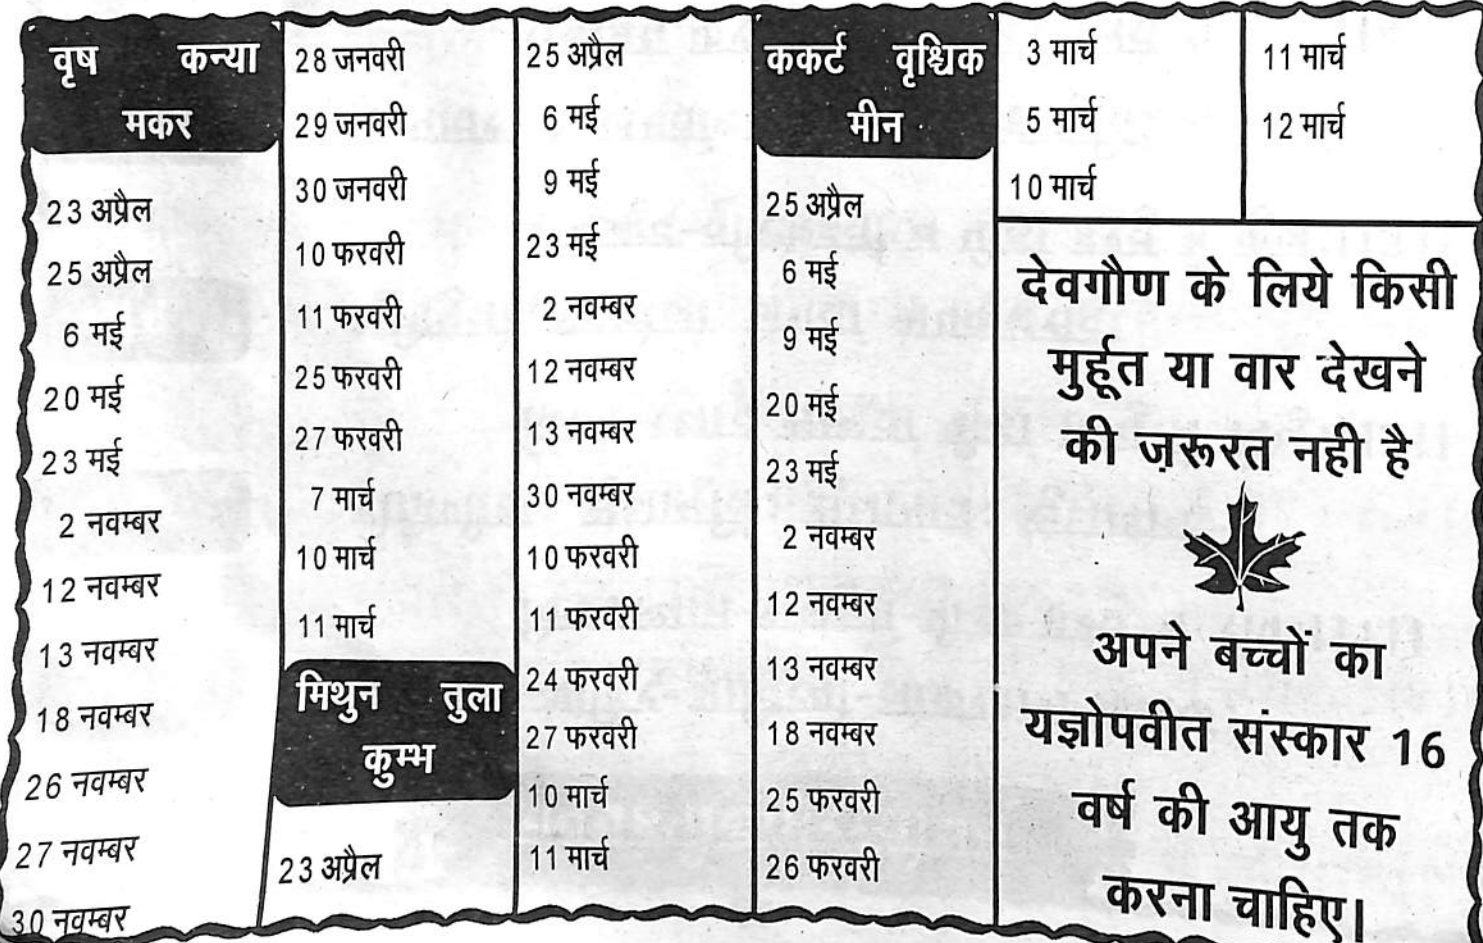 वृष कन्या
मकर
23 अप्रैल
25 अप्रैल
6 मई
20 मई
23 मई
2 नवम्बर
12 नवम्बर
13 नवम्बर
18 नवम्बर
26 नवम्बर
27 नवम्बर
30 नवम्बर
28 जनवरी
29 जनवरी
30 जनवरी
10 फरवरी
11 फरवरी
25 फरवरी
27 फरवरी
7 मार्च
10 मार्च
11 मार्च
मिथुन तुला
कुम्भ
23 अप्रैल
25 अप्रैल
6 मई
9 मई
23 मई
2 नवम्बर
12 नवम्बर
13 नवम्बर
30 नवम्बर
10 फरवरी
11 फरवरी
24 फरवरी
27 फरवरी
10 मार्च
11 मार्च
ककर्ट वृश्चिक
मीन
25 अप्रैल
6 मई
9 मई
20 मई
23 मई
2 नवम्बर
12 नवम्बर
13 नवम्बर
18 नवम्बर
25 फरवरी
26 फरवरी
3 मार्च
5 मार्च
10 मार्च
11 मार्च
12 मार्च
देवगौण के लिये किसी
मुर्हूत या वार देखने
की ज़रूरत नही है
अपने बच्चों का
यज्ञोपवीत संस्कार 16
वर्ष की आयु तक
करना चाहिए।